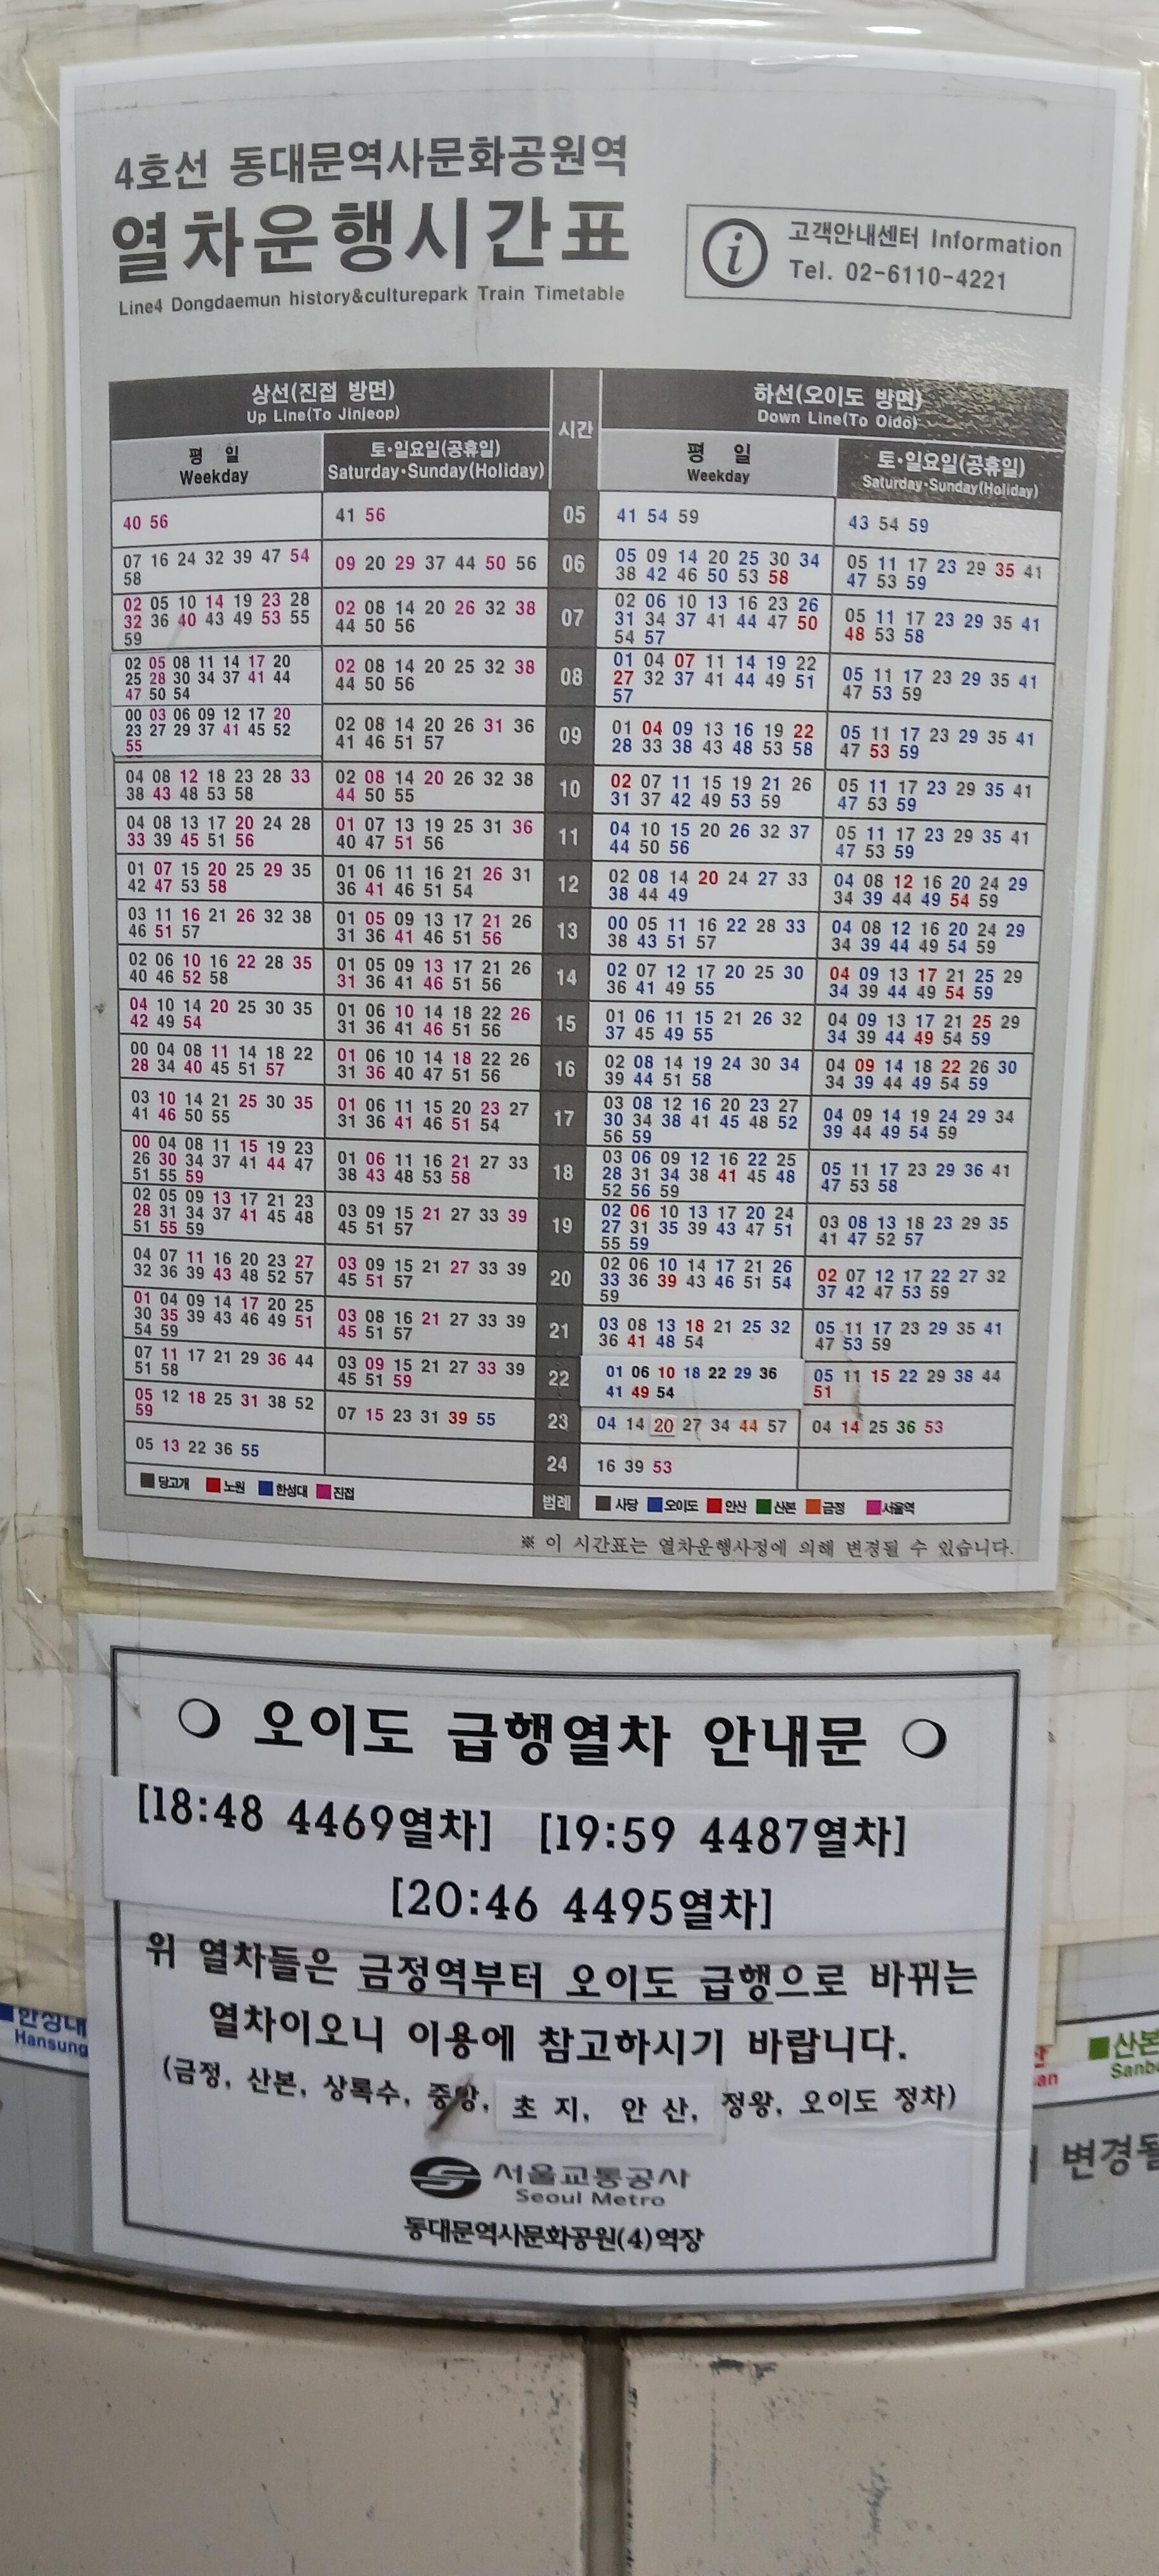 4호선 동대문역사문화공원역
열차운행시간표
Line4 Dongdaemun history&culturepark Train Timetable
고객안내센터 Information
Tel. 02-6110-4221
상선(진접 방면)
Up Line(To Jinjeop)
시간
하선(오이도 방면)
Down Line(To Oido)
평 일
Weekday
토·일요일(공휴일)
Saturday·Sunday(Holiday)
평 일
Weekday
토·일요일(공휴일)
Saturday·Sunday(Holiday)
40 56
41 56
05
41 54 59
43 54 59
07 16 24 32 39 47 54
58
09 20 29 37 44 50 56
06
05 09 14 20 25 30 34
38 42 46 50 53 58
05 11 17 23 29 35 41
47 53 59
02 05 10 14 19 23 28
32 36 40 43 49 53 55
59
02 08 14 20 26 32 38
44 50 56
07
02 06 10 13 16 23 26
31 34 37 41 44 47 50
54 57
05 11 17 23 29 35 41
48 53 58
02 05 08 11 14 17 20
25 28 30 34 37 41 44
47 50 54
02 08 14 20 25 32 38
44 50 56
08
01 04 07 11 14 19 22
27 32 37 41 44 49 51
57
05 11 17 23 29 35 41
47 53 59
00 03 06 09 12 17 20
23 27 29 37 41 45 52
55
02 08 14 20 26 31 36
41 46 51 57
09
01 04 09 13 16 19 22
28 33 38 43 48 53 58
05 11 17 23 29 35 41
47 53 59
04 08 12 18 23 28 33
38 43 48 53 58
02 08 14 20 26 32 38
44 50 55
10
02 07 11 15 19 21 26
31 37 42 49 53 59
05 11 17 23 29 35 41
47 53 59
04 08 13 17 20 24 28
33 39 45 51 56
01 07 13 19 25 31 36
40 47 51 56
11
04 10 15 20 26 32 37
44 50 56
05 11 17 23 29 35 41
47 53 59
01 07 15 20 25 29 35
42 47 53 58
01 06 11 16 21 26 31
36 41 46 51 54
12
02 08 14 20 24 27 33
38 44 49
04 08 12 16 20 24 29
34 39 44 49 54 59
03 11 16 21 26 32 38
46 51 57
01 05 09 13 17 21 26
31 36 41 46 51 56
13
00 05 11 16 22 28 33
38 43 51 57
04 08 12 16 20 24 29
34 39 44 49 54 59
02 06 10 16 22 28 35
40 46 52 58
01 05 09 13 17 21 26
31 36 41 46 51 56
14
02 07 12 17 20 25 30
36 41 49 55
04 09 13 17 21 25 29
34 39 44 49 54 59
04 10 14 20 25 30 35
42 49 54
01 06 10 14 18 22 26
31 36 41 46 51 56
15
01 06 11 15 21 26 32
37 45 49 55
04 09 13 17 21 25 29
34 39 44 49 54 59
00 04 08 11 14 18 22
28 34 40 45 51 57
01 06 10 14 18 22 26
31 36 40 47 51 56
16
02 08 14 19 24 30 34
39 44 51 58
04 09 14 18 22 26 30
34 39 44 49 54 59
03 10 14 21 25 30 35
41 46 50 55
01 06 11 15 20 23 27
31 36 41 46 51 54
17
03 08 12 16 20 23 27
30 34 38 41 45 48 52
56 59
04 09 14 19 24 29 34
39 44 49 54 59
00 04 08 11 15 19 23
26 30 34 37 41 44 47
51 55 59
01 06 11 16 21 27 33
38 43 48 53 58
18
03 06 09 12 16 22 25
28 31 34 38 41 45 48
52 56 59
05 11 17 23 29 36 41
47 53 58
02 05 09 13 17 21 23
28 31 34 37 41 45 48
51 55 59
03 09 15 21 27 33 39
45 51 57
19
02 06 10 13 17 20 24
27 31 35 39 43 47 51
55 59
03 08 13 18 23 29 35
41 47 52 57
04 07 11 16 20 23 27
32 36 39 43 48 52 57
03 09 15 21 27 33 39
45 51 57
20
02 06 10 14 17 21 26
33 36 39 43 46 51 54
59
02 07 12 17 22 27 32
37 42 47 53 59
01 04 09 14 17 20 25
30 35 39 43 46 49 51
54 59
03 08 16 21 27 33 39
45 51 57
21
03 08 13 18 21 25 32
36 41 48 54
05 11 17 23 29 35 41
47 53 59
07 11 17 21 29 36 44
51 58
03 09 15 21 27 33 39
45 51 59
22
01 06 10 18 22 29 36
41 49 54
05 11 15 22 29 38 44
51
05 12 18 25 31 38 52
59
07 15 23 31 39 55
23
04 14 20 27 34 44 57
04 14 25 36 53
05 13 22 36 55
24
16 39 53
당고개 노원 한성대 진접
범례
사당 오이도 안산 산본 금정 서울역
※ 이 시간표는 열차운행사정에 의해 변경될 수 있습니다.
○ 오이도 급행열차 안내문 ○
[18:48 4469열차] [19:59 4487열차]
[20:46 4495열차]
위 열차들은 금정역부터 오이도 급행으로 바뀌는
열차이오니 이용에 참고하시기 바랍니다.
(금정, 산본, 상록수, 중앙, 초 지, 안 산, 정왕, 오이도 정차)
서울교통공사
Seoul Metro
동대문역사문화공원(4)역장
한성대
Hansung
산본
변경될